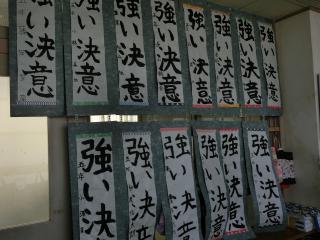 強い決意
強い決意
強い決意
強い決意
強い決意
強い決意
強い決意
強い決意
強い決意
強い決
強い決意
強い決
強い決意
強い決意
強い決意